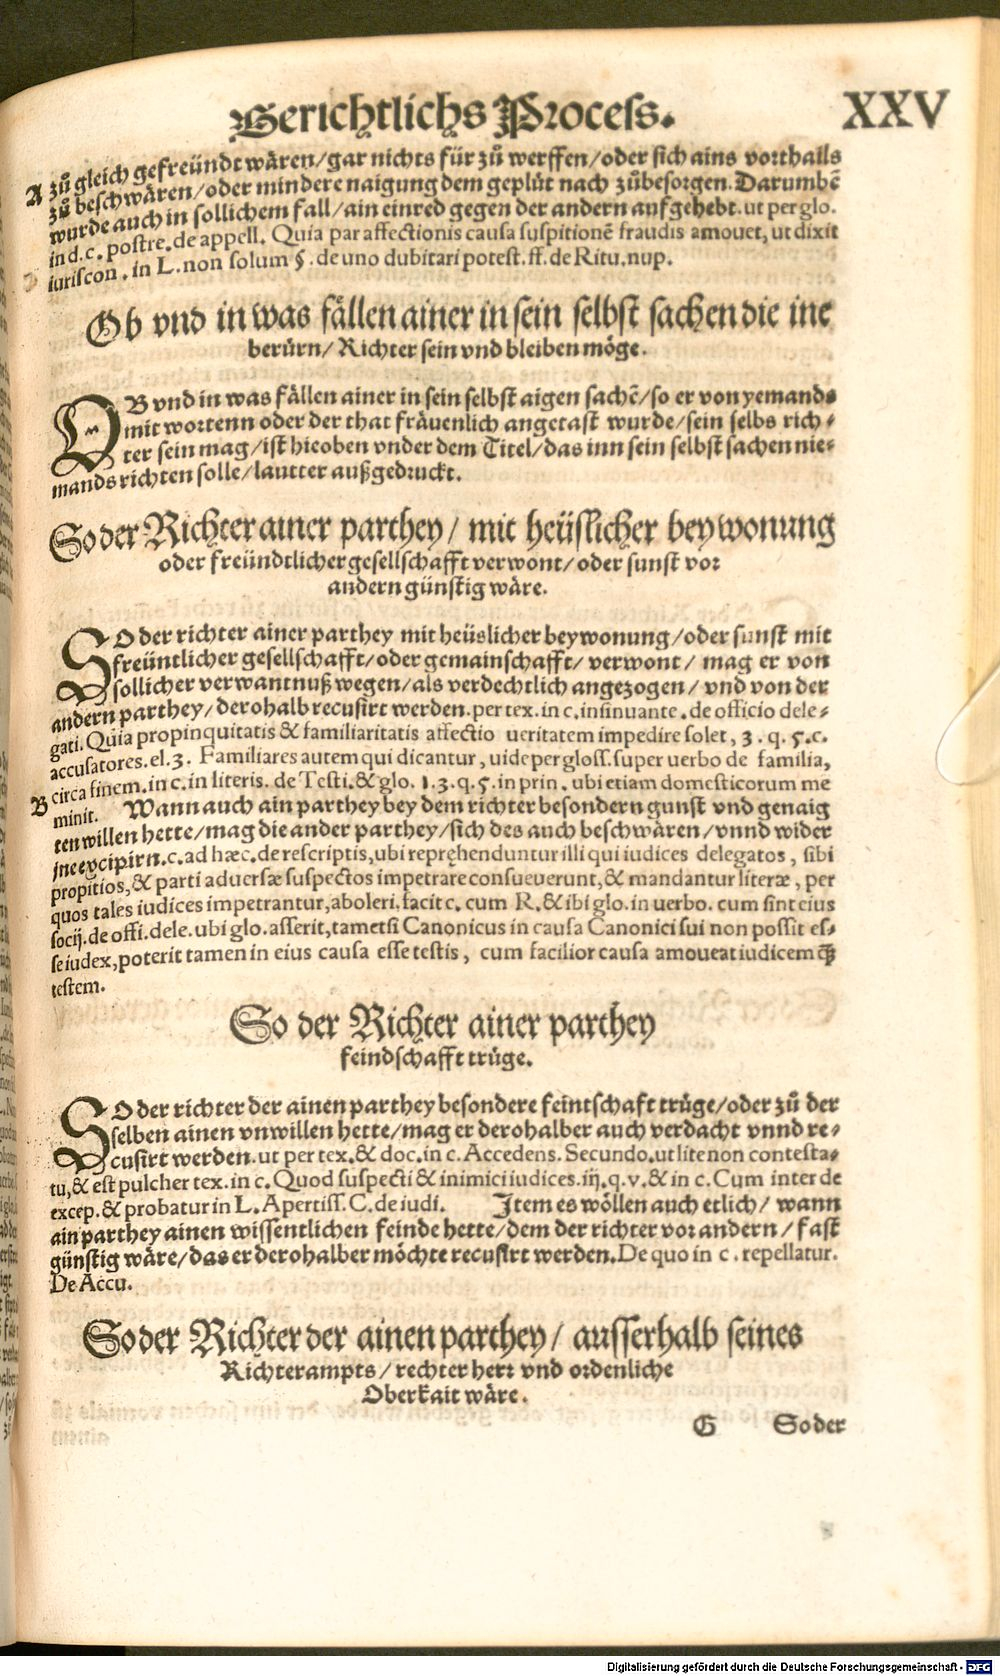 Gerichtlichs Process. XXV
A zů gleich gefreündt wären/gar nichts für zů werffen/oder sich ains vorthails
zů beschwären/oder mindere naigung dem geplüt nach zůbesorgen. Darumbē
wurde auch in sollichem fall/ain einred gegen der andern auffgehebt. ut per glo.
in d.c. postre. de appell. Quia par affectionis causa suspitionē fraudis amouet, ut dixit
iuriscon. in L. non solum §. de uno dubitari potest. ff. de Ritu. nup.
Ob vnd in was fällen ainer in sein selbst sachen die ine
berürn/ Richter sein vnd bleiben möge.
OB vnd in was fällen ainer in sein selbst aigen sachē/so er von yemands
mit wortenn oder der that fräuenlich angetast wurde/sein selbs rich-
ter sein mag/ist hieoben vnder dem Titel/das inn sein selbst sachen nie-
mands richten solle/lautter außgedruckt.
So der Richter ainer parthey/ mit heüslicher beywonung
oder freündtlicher gesellschafft verwont/oder sunst vor
andern günstig wäre.
SO der richter ainer parthey mit heüslicher beywonung/oder sunst mit
freüntlicher gesellschafft/oder gemainschafft/ verwont/ mag er von
sollicher verwantnuß wegen/als verdechtlich angezogen/ vnd von der
andern parthey/derohalb recusirt werden. per tex. in c. insinuante. de officio dele-
gati. Quia propinquitatis & familiaritatis affectio ueritatem impedire solet, 3. q. 5. c.
accusatores. el. 3. Familiares autem qui dicantur, uide per gloss. super uerbo de familia,
circa finem. in c. in literis. de Testi. & glo. 1. 3. q. 5. in prin. ubi etiam domesticorum me
B minit. Wann auch ain parthey bey dem richter besondern gunst vnd genaig
ten willen hette/mag die ander parthey/sich des auch beschwären/vnnd wider
jne excipirn. c. ad hæc. de rescriptis, ubi repręhenduntur illi qui iudices delegatos, sibi
propitios, & parti aduersæ suspectos impetrare consueuerunt, & mandantur literæ, per
quos tales iudices impetrantur, aboleri. facit c. cum R. & ibi glo. in uerbo. cum sint eius
socij. de offi. dele. ubi glo. asserit, tametsi Canonicus in causa Canonici sui non possit es-
se iudex, poterit tamen in eius causa esse testis, cum facilior causa amoueat iudicem ꝙ̃
testem.
So der Richter ainer parthey
feindschafft trüge.
SO der richter der ainen parthey besondere feintschaft trüge/oder zů der
selben ainen vnwillen hette/mag er derohalber auch verdacht vnnd re-
cusirt werden. ut per tex. & doc. in c. Accedens. Secundo. ut lite non contesta-
tu, & est pulcher tex. in c. Quod suspecti & inimici iudices. iij. q. v. & in c. Cum inter de
excep. & probatur in L. Apertiss. C. de iudi. Item es wöllen auch etlich/ wann
ain parthey ainen wissentlichen feinde hette/dem der richter vor andern/ fast
günstig wäre/das er derohalber möchte recusirt werden. De quo in c. repellatur.
De Accu.
So der Richter der ainen parthey/ ausserhalb seines
Richterampts/ rechter herr vnd ordenliche
Oberkait wäre.
G So der
Digitalisierung gefördert durch die Deutsche Forschungsgemeinschaft - DFG